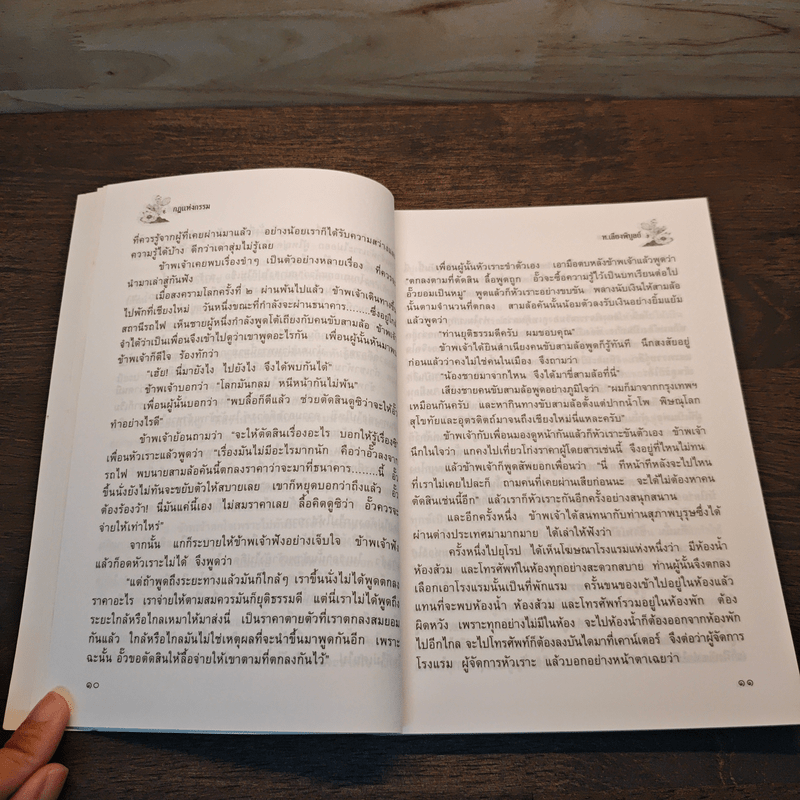 กฎแห่งกรรม
ที่ควรรู้จากผู้ที่เคยผ่านมาแล้ว อย่างน้อยเราก็ได้รับความสว่าง
ความรู้ได้บ้าง ดีกว่าเดาสุ่มไม่รู้เลย
ข้าพเจ้าเคยพบเรื่องขำๆ เป็นตัวอย่างหลายเรื่อง ที่ควร
นำมาเล่าสู่กันฟัง
เมื่อสงครามโลกครั้งที่ ๒ ผ่านพ้นไปแล้ว ข้าพเจ้าเดินทาง
ไปพักที่เชียงใหม่ วันหนึ่งขณะที่กำลังจะผ่านธนาคาร........ซึ่งอยู่ใกล้
สถานีรถไฟ เห็นชายผู้หนึ่งกำลังพูดโต้เถียงกับคนขับสามล้อ ข้าพเจ้า
จำได้ว่าเป็นเพื่อนจึงเข้าไปดูว่าเขาพูดอะไรกัน เพื่อนผู้นั้นหันมาพบ
ข้าพเจ้าก็ดีใจ ร้องทักว่า
"เฮ้ย! นี่มายังไง ไปยังไง จึงได้พบกันได้"
ข้าพเจ้าบอกว่า "โลกมันกลม หนีหน้ากันไม่พ้น"
เพื่อนผู้นั้นบอกว่า "พบลื้อก็ดีแล้ว ช่วยตัดสินดูซิว่าจะให้อั๊ว
ทำอย่างไรดี"
ข้าพเจ้าย้อนถามว่า "จะให้ตัดสินเรื่องอะไร บอกให้รู้เรื่องซิ
เพื่อนหัวเราะแล้วพูดว่า "เรื่องมันไม่มีอะไรมากนัก คือว่าอั๊วลงจาก
รถไฟ พบนายสามล้อคันนี้ตกลงราคาว่าจะมาที่ธนาคาร........นี้ อั๊ว
ขึ้นนั่งยังไม่ทันจะขยับตัวให้สบายเลย เขาก็หยุดบอกว่าถึงแล้ว อั๊ว
ต้องร้องว้า! นี่มันแค่นี่เอง ไม่สมราคาเลย ลื้อคิดดูซิว่า อั๊วควรจะ
จ่ายให้เท่าไหร่"
จากนั้น แกก็ระบายให้ข้าพเจ้าฟังอย่างเจ็บใจ ข้าพเจ้าฟัง
แล้วก็อดหัวเราะไม่ได้ จึงพูดว่า
"แต่ถ้าพูดถึงระยะทางแล้วมันก็ใกล้ๆ เราขึ้นนั่งไม่ได้พูดตกลง
ราคาอะไร เราจ่ายให้ตามสมควรมันก็ยุติธรรมดี แต่นี่เราไม่ได้พูดถึง
ระยะใกล้หรือไกลเหมาให้มาส่งนี่ เป็นราคาตายตัวที่เราตกลงสมยอม
กันแล้ว ใกล้หรือไกลมันไม่ใช่เหตุผลที่จะนำขึ้นมาพูดกันอีก เพราะ
ฉะนั้น อั๊วขอตัดสินให้ลื้อจ่ายให้เขาตามที่ตกลงกันไว้"
๑๐
ท.เลียงพิบูลย์
เพื่อนผู้นั้นหัวเราะขำตัวเอง เอามือตบหลังข้าพเจ้าแล้วพูดว่า
"ตกลงตามที่ตัดสิน ลื้อพูดถูก อั๊วจะซื้อความรู้ไว้เป็นบทเรียนต่อไป
อั๊วยอมเป็นหมู" พูดแล้วก็หัวเราะอย่างขบขัน พลางนับเงินให้สามล้อ
นั้นตามจำนวนที่ตกลง สามล้อคันนั้นน้อมตัวลงรับเงินอย่างยิ้มแย้ม
แล้วพูดว่า
"ท่านยุติธรรมดีครับ ผมขอบคุณ"
ข้าพเจ้าได้ยินสำเนียงคนขับสามล้อพูดก็รู้ทันที นึกสงสัยอยู่
ก่อนแล้วว่าคงไม่ใช่คนในเมือง จึงถามว่า
"น้องชายมาจากไหน จึงได้มาขี่สามล้อที่นี่"
เสียงชายคนขับสามล้อพูดอย่างภูมิใจว่า "ผมก็มาจากกรุงเทพฯ
เหมือนกันครับ และหากินทางขับสามล้อตั้งแต่ปากน้ำโพ พิษณุโลก
สุโขทัยและอุตรดิตถ์มาจนถึงเชียงใหม่นี่แหละครับ"
ข้าพเจ้ากับเพื่อนมองดูหน้ากันแล้วก็หัวเราะขันตัวเอง ข้าพเจ้า
นึกในใจว่า แกคงไปเที่ยวโก่งราคาผู้โดยสารเช่นนี้ จึงอยู่ที่ไหนไม่ทน
แล้วข้าพเจ้าก็พูดสัพยอกเพื่อนว่า "นี่ ทีหน้าทีหลังจะไปไหน
ที่เราไม่เคยไปละก็ ถามคนที่เคยผ่านเสียก่อนนะ จะได้ไม่ต้องหาคน
ตัดสินเช่นนี้อีก" แล้วเราก็หัวเราะกันอีกครั้งอย่างสนุกสนาน
และอีกครั้งหนึ่ง ข้าพเจ้าได้สนทนากับท่านสุภาพบุรุษซึ่งได้
ผ่านต่างประเทศมามากมาย ได้เล่าให้ฟังว่า
ครั้งหนึ่งไปยุโรป ได้เห็นโฆษณาโรงแรมแห่งหนึ่งว่า มีห้องน้ำ
ห้องส้วม และโทรศัพท์ในห้องทุกอย่างสะดวกสบาย ท่านผู้นั้นจึงตกลง
เลือกเอาโรงแรมนั้นเป็นที่พักแรม ครั้นขนของเข้าไปอยู่ในห้องแล้ว
แทนที่จะพบห้องน้ำ ห้องส้วม และโทรศัพท์รวมอยู่ในห้องพัก ต้อง
ผิดหวัง เพราะทุกอย่างไม่มีในห้อง จะไปห้องน้ำก็ต้องออกจากห้องพัก
ไปอีกไกล จะไปโทรศัพท์ก็ต้องลงบันไดมาที่เคาน์เตอร์ จึงต่อว่าผู้จัดการ
โรงแรม ผู้จัดการหัวเราะ แล้วบอกอย่างหน้าตาเฉยว่า
๑๑